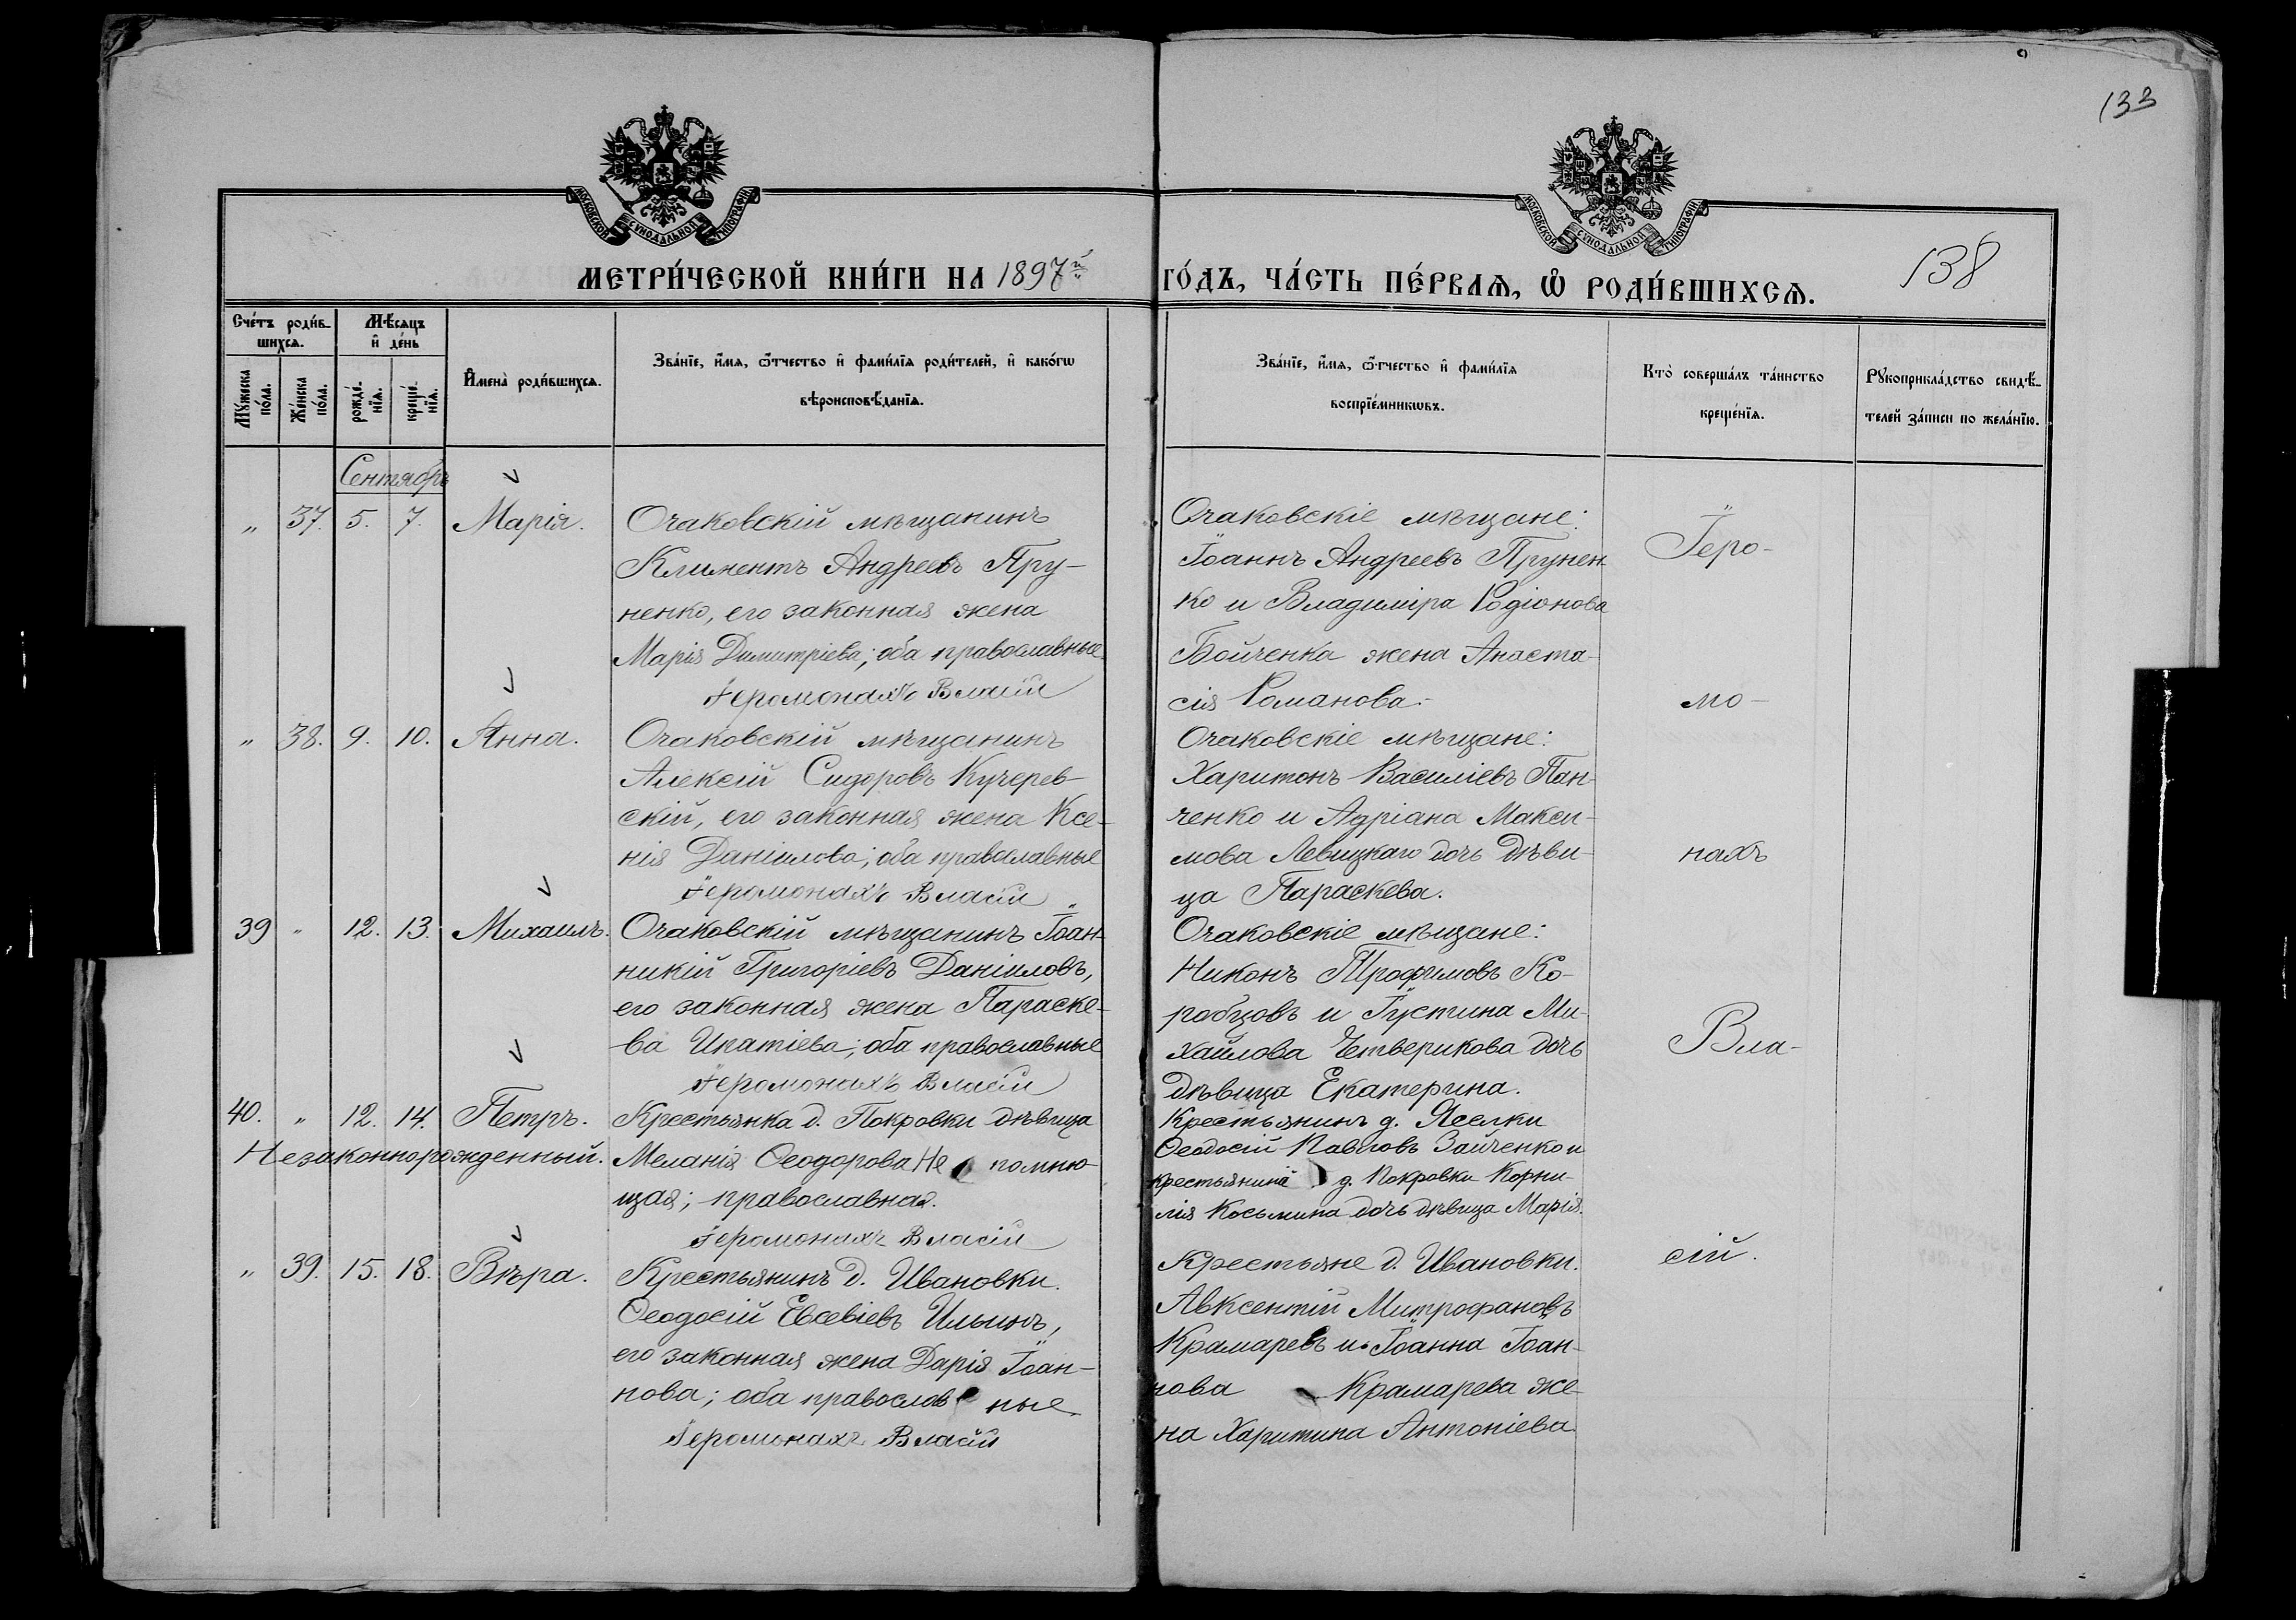 133
МОСКОВСКОЙ СУНОДАЛЬНОЙ ТИПОГРАФІИ
МОСКОВСКОЙ СУНОДАЛЬНОЙ ТИПОГРАФІИ
138
МЕТРИ́ЧЕСКОЙ КНИ́ГИ НА 1897й
ГО́ДЪ, ЧА́СТЬ ПЕ́РВАѦ, Ѡ҆ РОДИ́ВШИХСѦ.
Сче́тъ роди́в-
шихсѧ.
Мꙋ́жеска
по́ла.
Же́нска
по́ла.
Мѣ́сѧцъ
и҆ де́нь
рожде́-
нїѧ.
креще́-
нїѧ.
И҆мена̀ роди́вшихсѧ.
Зва́нїе, и҆́мѧ, ѻ҆́тчество и҆ фами́лїѧ роди́телей, и҆ како́гѡ
вѣроисповѣ́данїѧ.
Зва́нїе, и҆́мѧ, ѻ҆́тчество и҆ фами́лїѧ
воспрїе́мникѡвъ.
Кто̀ соверша́лъ та́инство
креще́нїѧ.
Рꙋкоприкла́дство свидѣ́-
телей за́писи по жела́нїю.
Сентябрь
„ 37. 5. 7. Марія.
Очаковскій мѣщанинъ
Климентъ Андреевъ Пру-
ненко, его законная жена
Марія Димитріева; оба православные
Іеромонахъ Власій
Очаковскіе мѣщане:
Іоаннъ Андреевъ Прунен-
ко и Владиміра Родіонова
Бойченка жена Анаста-
сія Романова.
„ 38. 9. 10. Анна.
Очаковскій мѣщанинъ
Алексій Сидоровъ Кучерев-
скій, его законная жена Ксе-
нія Даніилова; оба православные
Іеромонахъ Власій
Очаковскіе мѣщане:
Харитонъ Василіевъ Пан-
ченко и Адріана Макси-
мова Левицкаго дочь дѣви-
ца Параскева.
39 „ 12. 13. Михаилъ.
Очаковскій мѣщанинъ Іоан-
никій Григоріевъ Даніиловъ,
его законная жена Параске-
ва Ипатіева; оба православные
Іеромонахъ Власій
Очаковскіе мѣщане:
Никонъ Трофимовъ Ко-
робцовъ и Іустина Ми-
хайлова Четверикова дочь
дѣвица Екатерина.
40. „ 12. 14. Петръ.
Незаконнорожденный.
Крестьянка д. Покровки дѣвица
Меланія Ѳеодорова Не помню-
щая; православная.
Іеромонахъ Власій
Крестьянинъ д. Яселки
Ѳеодосій Павловъ Зайченко и
крестьянина д. Покровки Корни-
лія Косьмина дочь дѣвица Марія.
„ 39. 15. 18. Вѣра.
Крестьянинъ д. Ивановки.
Ѳеодосій Евсевіевъ Ильинъ,
его законная жена Дарія Іоан-
нова; оба православные
Іеромонахъ Власій
Крестьяне д. Ивановки.
Авксентій Митрофановъ
Крамаревъ и Іоанна Іоан-
нова Крамарева же-
на Харитина Антоніева.
Іеро-
мо-
нахъ
Вла-
сій.